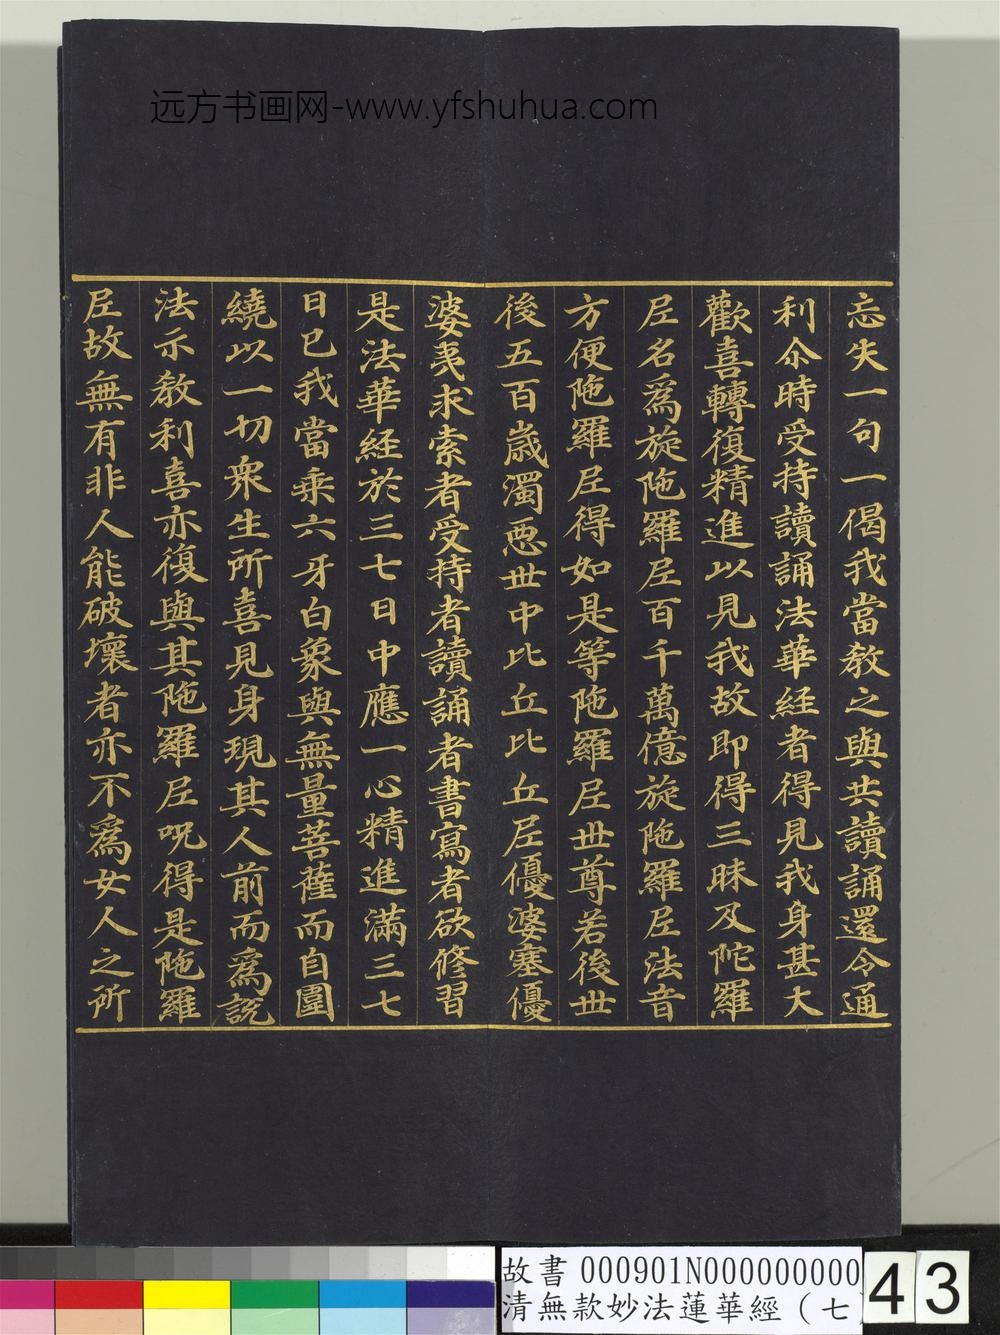 远方书画网-www.yfshuhua.com
忘失一句一偈我當教之與共讀誦還令通
利尒時受持讀誦法華經者得見我身甚大
歡喜轉復精進以見我故即得三昧及陀羅
尼名為旋陁羅尼百千萬億旋陁羅尼法音
方便陁羅尼得如是等陁羅尼世尊若後世
後五百歲濁惡世中比丘比丘尼優婆塞優
婆夷求索者受持者讀誦者書寫者欲修習
是法華經於三七日中應一心精進滿三七
日已我當乘六牙白象與無量菩薩而自圍
繞以一切衆生所喜見身現其人前而為說
法示教利喜亦復與其陁羅尼呪得是陁羅
尼故無有非人能破壞者亦不為女人之所
故書 000901N000000000
清無款妙法蓮華經（七
43